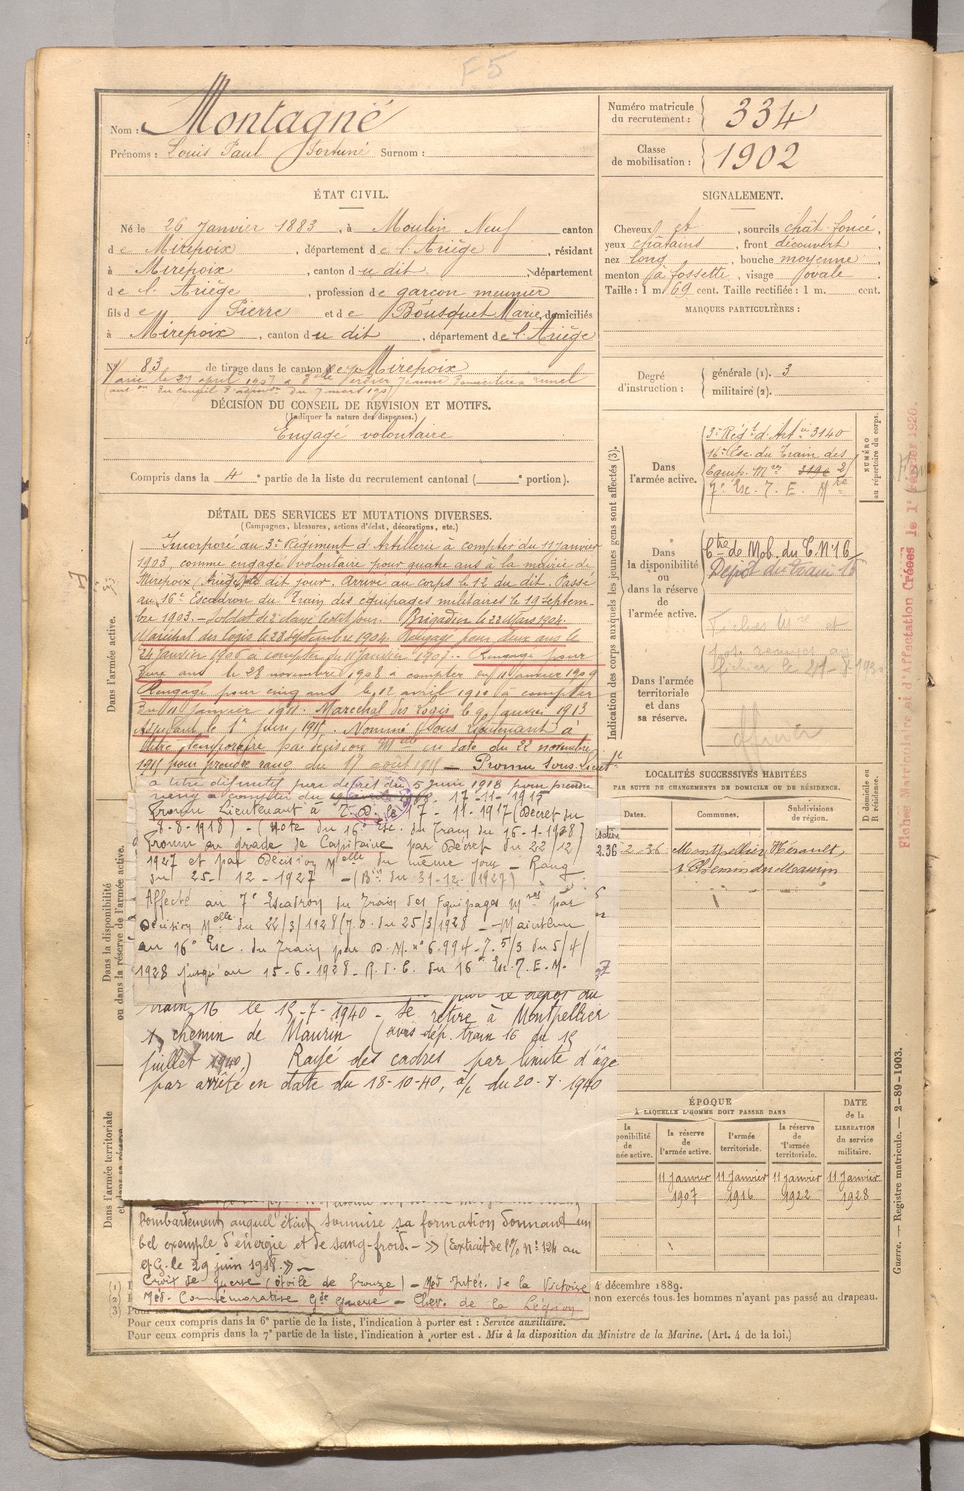 F5
Nom : Montagné
Prénoms : Louis Paul Fortuné Surnom :
Numéro matricule du recrutement : 334
Classe de mobilisation : 1902
ÉTAT CIVIL.
Né le 26 Janvier 1883, à Moulin Neuf canton
de Mirepoix, département de l'Ariège, résidant
à Mirepoix, canton du dit, département
de l'Ariège, profession de garçon meunier
fils de Pierre et de Bousquet Marie, domiciliés
à Mirepoix, canton du dit, département de l'Ariège
N° 83 de tirage dans le canton de Mirepoix
SIGNALEMENT.
Cheveux et, sourcils chât foncé,
yeux châtains, front découvert,
nez long, bouche moyenne,
menton à fossette, visage ovale.
Taille : 1 m. 69 cent. Taille rectifiée : 1 m. cent.
MARQUES PARTICULIÈRES :
Degré d'instruction : générale (1). 3
militaire (2).
DÉCISION DU CONSEIL DE REVISION ET MOTIFS.
(Indiquer la nature des dispenses.)
Engagé volontaire
Compris dans la 4e partie de la liste du recrutement cantonal ( e portion).
DÉTAIL DES SERVICES ET MUTATIONS DIVERSES.
(Campagnes, blessures, actions d'éclat, décorations, etc.)
Dans l'armée active.
Incorporé au 3e Régiment d'Artillerie à compter du 11 Janvier
1903, comme engagé volontaire pour quatre ans à la mairie de
Mirepoix, Ariège, le dit jour. Arrivé au corps le 12 du dit. Passé
au 16e Escadron du Train des équipages militaires le 19 Septem-
bre 1903. – Soldat de 2e classe le dit jour. Brigadier le 22 Mars 1904.
Maréchal des logis le 28 Septembre 1904. Rengagé pour deux ans le
24 Janvier 1906 à compter du 11 Janvier 1907. – Rengagé pour
deux ans le 28 novembre 1908 à compter du 11 Janvier 1909
Rengagé pour cinq ans le 12 avril 1910 à compter
du 11 Janvier 1911. Maréchal des Logis le 9 Janvier 1913
Adjudant le 1er Juin 1915. Nommé Sous Lieutenant à
titre temporaire par décision Mlle en date du 22 novembre
1915 pour prendre rang du 17 août 1915 – Promu Sous-Lieutt
à titre définitif par décret du 5 Juin 1918 pour prendre
rang à compter du 17-11-1915
Promu Lieutenant à T.D. le 17-11-1917 (Décret du
8-8-1918) – (Note du 16e Esc. du Train du 16-1-1928)
Promu au grade de Capitaine par Décret du 22/12/
1927 et par Décision Melle du même jour – Rang
du 25-12-1927 – (Bin du 31-12-1927)
Affecté au 7e Escadron du Train des Equipages Mres par
Décision Melle du 22/3/1928 (J.O. du 25/3/1928 – Maintenu
au 16e Esc. du Train par D.M. n° 6.994-7.5/3 du 5/4/
1928 jusqu'au 15-6-1928 – R.d.C. du 16e Esc. T.E.M.
par le dépôt du
train 16 le 15-7-1940 – se retire à Montpellier
chemin de Maurin (avis dép. train 16 du 15
juillet 1940.) Rayé des cadres par limite d'âge
par arrêté en date du 18-10-40, à/c du 20-8-1940
bombardement auquel était soumise sa formation donnant un
bel exemple d'énergie et de sang-froid. – » (Extrait de l'O/ N° 124 au
29 juin 1918 ». –
Croix de guerre (étoile de bronze) – Méd. Intés. de la Victoire
Méd. Commémorative Gde Guerre – Chev. de la Légion
Dans la disponibilité ou dans la réserve de l'armée active.
Dans l'armée territoriale
Indication des corps auxquels les jeunes gens sont affectés (3).
NUMÉRO au répertoire du corps.
Dans l'armée active.
3e Régt d'Art n° 3140
16e Esc du Train des
Equip. Mres
7e Esc. T. E. Mre
Dans la disponibilité ou dans la réserve de l'armée active.
Ctre de Mob. du T. N° 16
Dépôt du train 16
Dans l'armée territoriale et dans sa réserve.
Officier
Fiches Matricules et d'Affectation Créées le 1er février 1926.
LOCALITÉS SUCCESSIVES HABITÉES
PAR SUITE DE CHANGEMENTS DE DOMICILE OU DE RÉSIDENCE.
Dates. Communes. Subdivisions de région. D domicile ou R résidence.
2-36 Montpellier Hérault
Chemin du Maurin
ÉPOQUE
À LAQUELLE L'HOMME DOIT PASSER DANS
la réserve de l'armée active. l'armée territoriale. la réserve de l'armée territoriale.
DATE de la LIBÉRATION du service militaire.
11 Janvier 1907 11 Janvier 1916 11 Janvier 1922 11 Janvier 1928
Guerre. — Registre matricule. — 2-89-1903.
4 décembre 1889.
non exercés tous les hommes n'ayant pas passé au drapeau.
Pour ceux compris dans la 6e partie de la liste, l'indication à porter est : Service auxiliaire.
Pour ceux compris dans la 7e partie de la liste, l'indication à porter est : Mis à la disposition du Ministre de la Marine. (Art. 4 de la loi.)